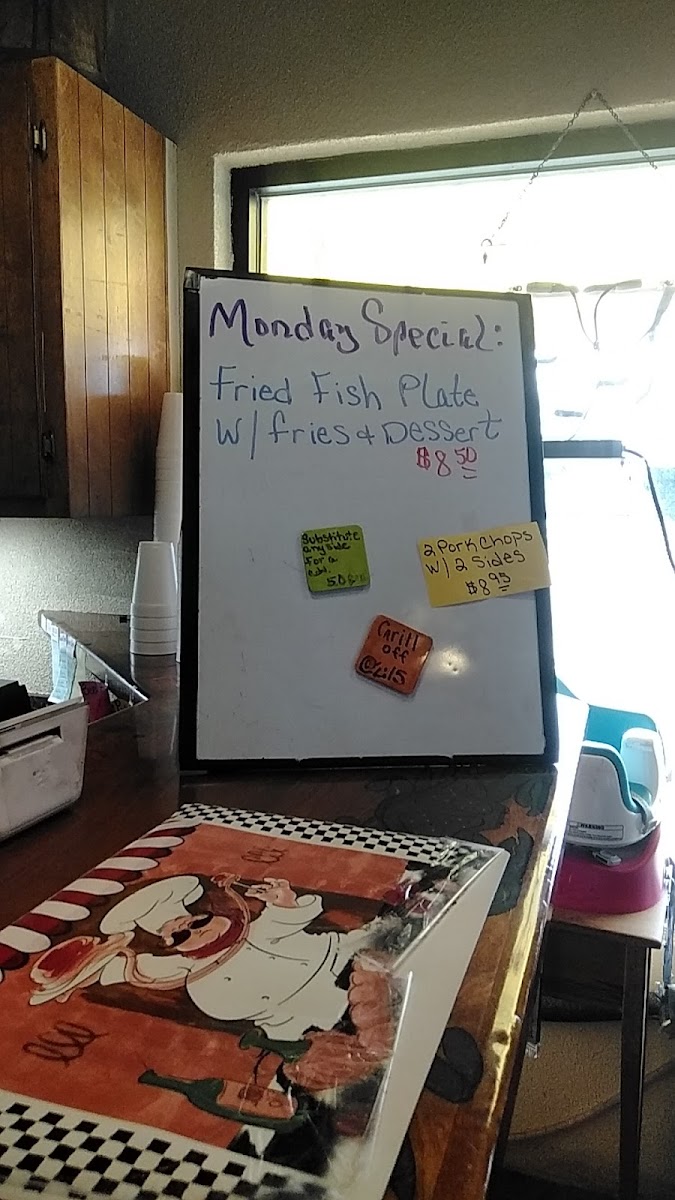 Monday Special:
Fried Fish Plate
W/ fries & Dessert
$8 50
Substitute
any side
for a
50
2 Pork Chops
W/ 2 Sides
$8 95
Grill
off
WARNING